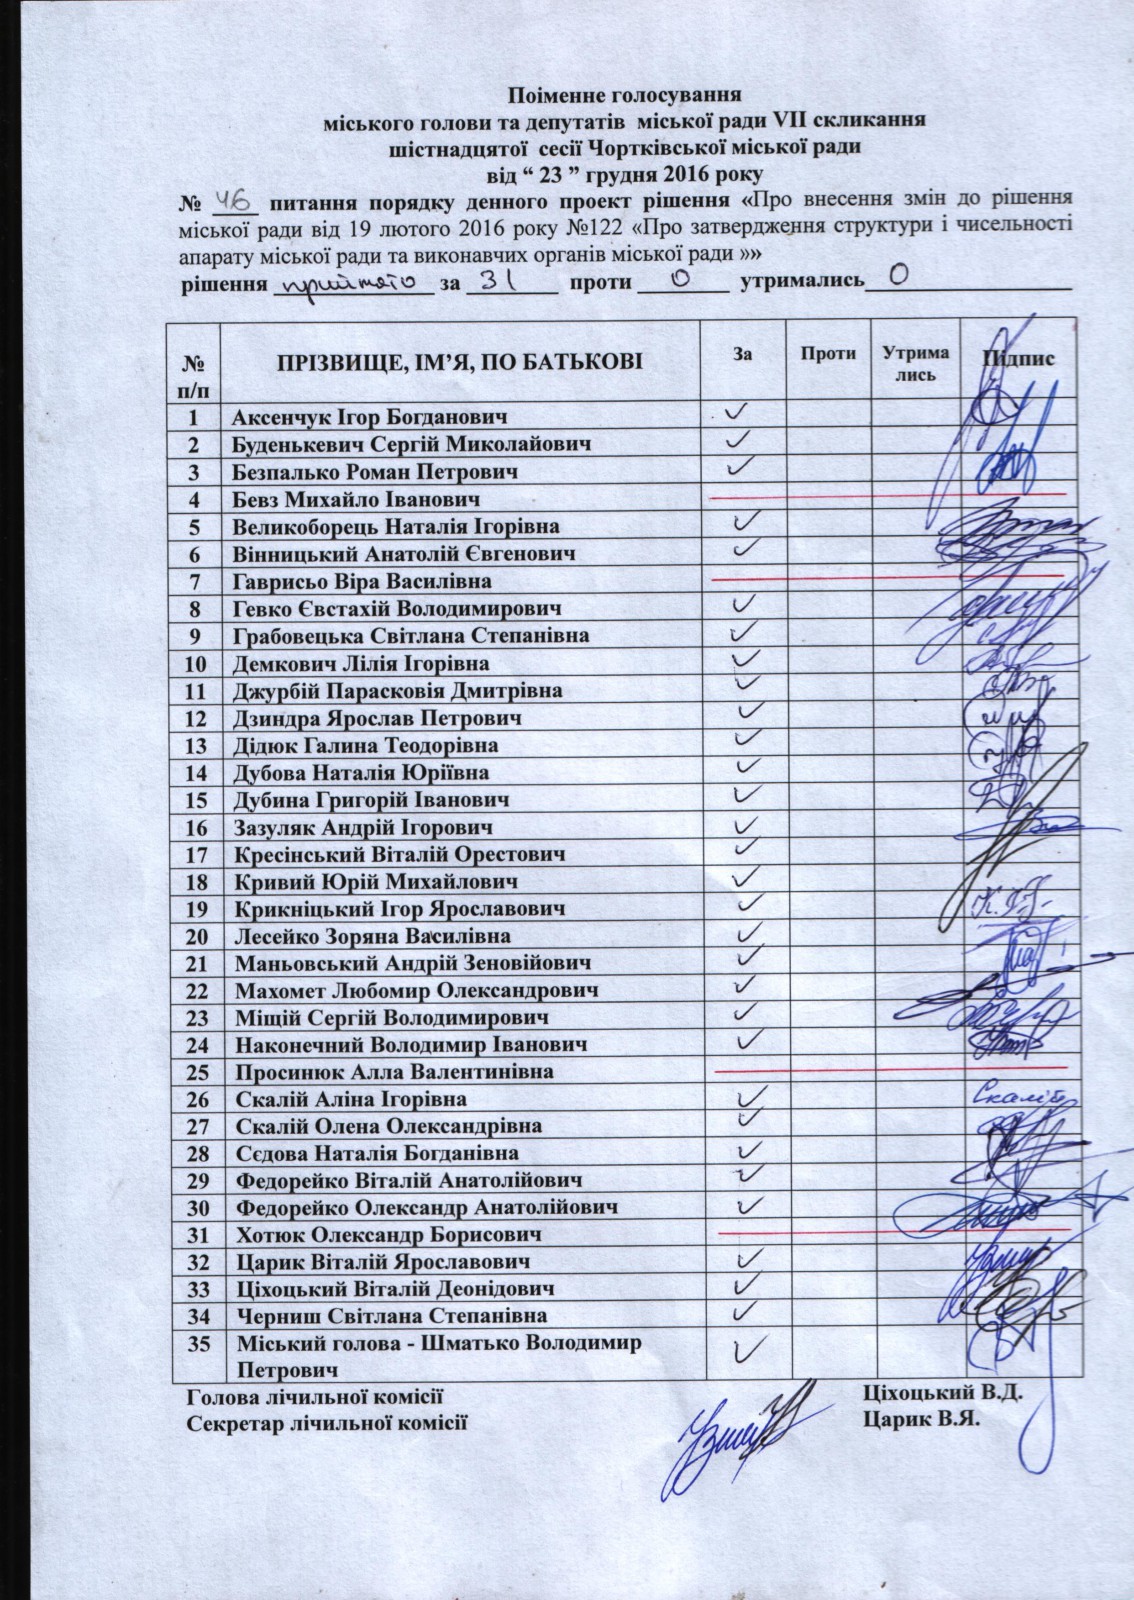 Поіменне голосування
міського голови та депутатів міської ради VII скликання
шістнадцятої сесії Чортківської міської ради
від “ 23 ” грудня 2016 року
№ 46 питання порядку денного проект рішення «Про внесення змін до рішення
міської ради від 19 лютого 2016 року №122 «Про затвердження структури і чисельності
апарату міської ради та виконавчих органів міської ради »»
рішення прийнято за 31 проти 0 утримались 0
№ п/п ПРІЗВИЩЕ, ІМ’Я, ПО БАТЬКОВІ За Проти Утрима лись Підпис
1 Аксенчук Ігор Богданович
2 Буденькевич Сергій Миколайович
3 Безпалько Роман Петрович
4 Бевз Михайло Іванович
5 Великоборець Наталія Ігорівна
6 Вінницький Анатолій Євгенович
7 Гаврисьо Віра Василівна
8 Гевко Євстахій Володимирович
9 Грабовецька Світлана Степанівна
10 Демкович Лілія Ігорівна
11 Джурбій Парасковія Дмитрівна
12 Дзиндра Ярослав Петрович
13 Дідюк Галина Теодорівна
14 Дубова Наталія Юріївна
15 Дубина Григорій Іванович
16 Зазуляк Андрій Ігорович
17 Кресінський Віталій Орестович
18 Кривий Юрій Михайлович
19 Крикніцький Ігор Ярославович
20 Лесейко Зоряна Василівна
21 Маньовський Андрій Зеновійович
22 Махомет Любомир Олександрович
23 Міщій Сергій Володимирович
24 Наконечний Володимир Іванович
25 Просинюк Алла Валентинівна
26 Скалій Аліна Ігорівна Скалій
27 Скалій Олена Олександрівна
28 Сєдова Наталія Богданівна
29 Федорейко Віталій Анатолійович
30 Федорейко Олександр Анатолійович
31 Хотюк Олександр Борисович
32 Царик Віталій Ярославович
33 Ціхоцький Віталій Деонідович
34 Черниш Світлана Степанівна
35 Міський голова - Шматько Володимир
Петрович
Голова лічильної комісії Ціхоцький В.Д.
Секретар лічильної комісії Царик В.Я.